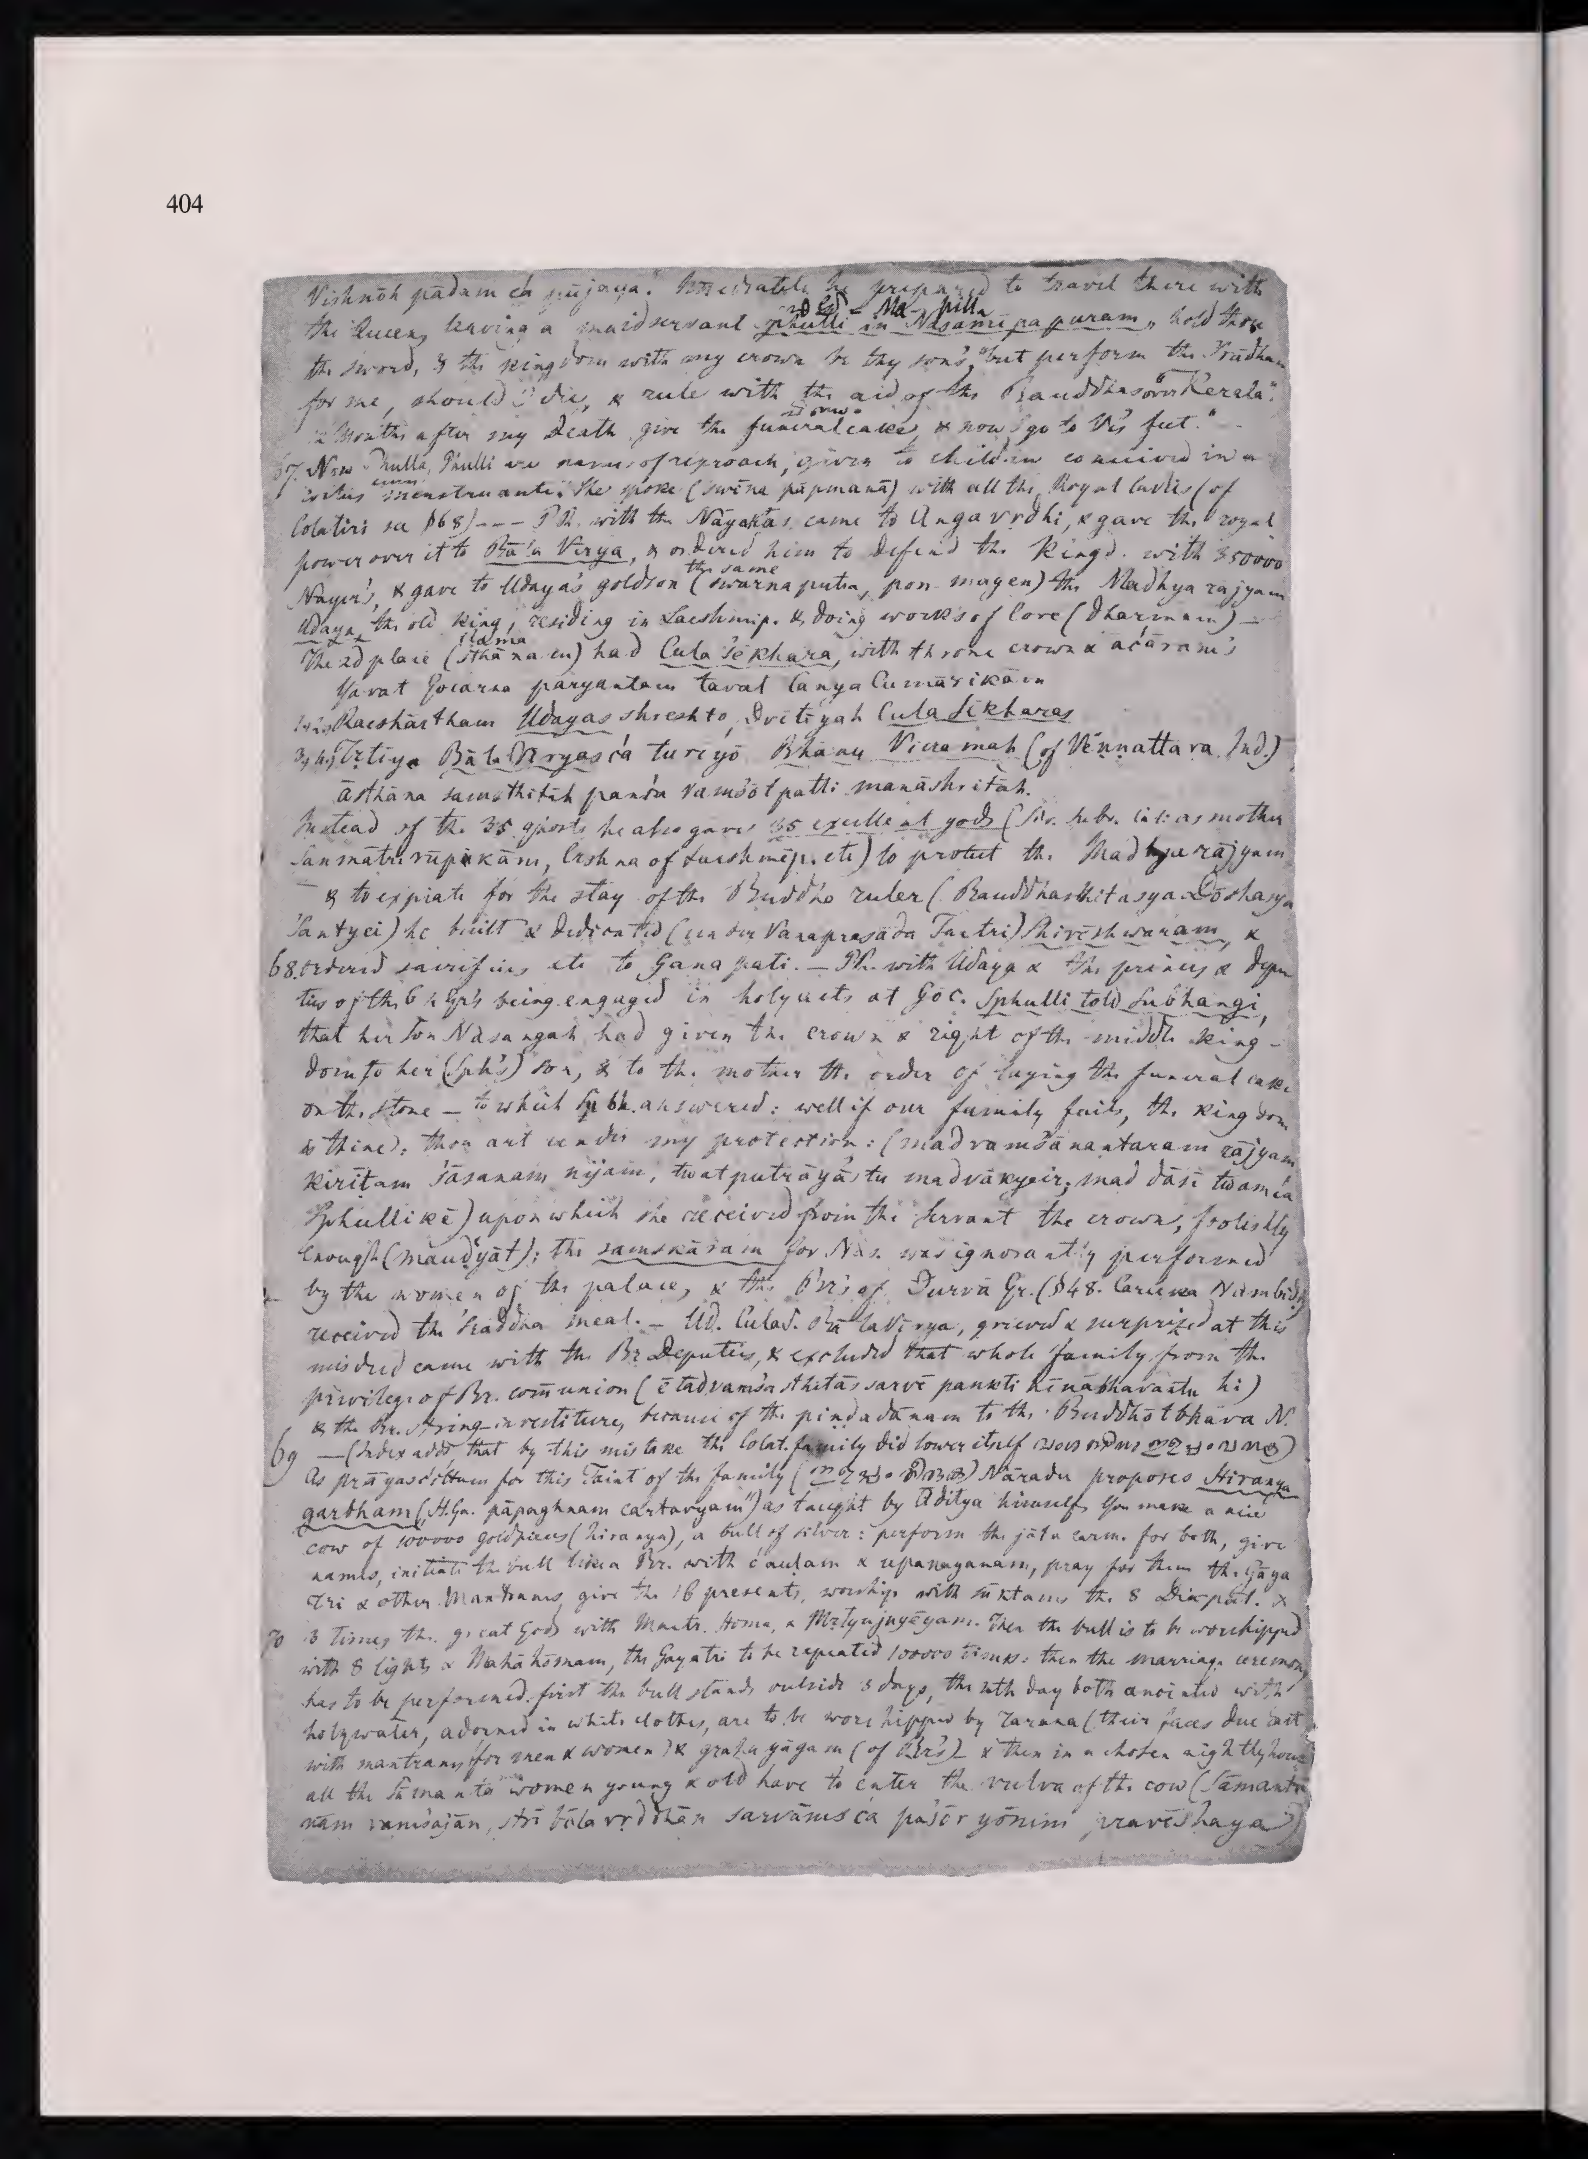 404
Vishnōh pādam ća pūjaya." Immediately he prepared to travel there with
Ma pilla
the Queen, leaving a maidservant phulli in Nāsamīpapuram, "hold thou
the sword, & the kingdom with my crown be thy son's, "but perform the Srādham
for me, should I die, & rule with the aid of the Bauddhas over Kerala".
12 Months after my death give the funeral cakes, & now I go to V's feet."
67. Now Phulla, Phulli are names of reproach, given to children conceived in a
coitus cum menstruante. She spoke (swīna pāpmanā) with all the Royal ladies (of
Colatiri see §68) --- Ph. with the Nāyakas came to Angavrdhi, & gave the royal
power over it to Bāla Vīrya, & ordered him to defend the Kingd. with 350000
the same
Nayer's, & gave to Udaya's goldson (swarnaputra, pon magen) the Madhya rājyam
Udaya, the old king, residing in Lacshmip. & doing works of love (dharmam) —
The 2d place (sthānam) had Cula sēkhara, with throne crown & āćāram's
Yavat Gocarna paryantam tavat Canya Cumārikām
1,2, Racshārtham Udayas shreshto, dvitiyah Cula sēkharas
3,4, Trtiya Bāla Vīryasća turiyō Bhānu Vicramah (of Vēnnattara, Ind.)
āsthāna samsthitāh panća vamsōtpatti manāshritāh.
Instead of the 35 ghosts he also gave 35 excellent gods (as mother
sanmātrirūpikām, Crshna of Lacshmip. etc) to protect the Madhyarājyam
— & to expiate for the stay of the Buddha ruler (Bauddhasthitasya Dōshasya
Sāntyei) he built & dedicated (under Vanaprasāda Tantri) Shivēshwaram, &
68. ordered sacrifices etc to Ganapati. — Ph. with Udaya & the princes & depu
ties of the 64 Gr's being engaged in holy acts at Goc. Sphulli told Subhangi,
that her son Nāsangah had given the crown & right of the middle king-
dom to her (Sph's) son, & to the mother the order of laying the funeral cake
on the stone — to which Subh. answered: well if our family fails, the kingdom
is thine; thou art under my protection: (madvamsānantaram rājyam
kirītam sāsanam nijam, twatputrāyāstu madvākyeir, mad dāsi twamća
Sphullikē) upon which she received from the servant the crown, foolishly
enough (maudyāt); the samskāram for Nās. was ignorantly performed
by the women of the palace, & the Br's of Durvā Gr. (§48. Nambidi)
received the Srāddha meal. — Ud. Culas. Bāla Vīrya, grieved & surprized at this
misdeed came with the Br. Deputies, & excluded that whole family from the
privilege of Br. com̄union (ētadvamsa sthitās sarvē pankti hīnā bhavantu hi)
& the Br. string-investiture, because of the pindadānam to the Buddhōtbhava N.
69 — (Index adds, that by this mistake the Colat. family did lower itself
As prāyasćittam for this Taint of the family Nāradu proposes Hiranya
garbham ("H.Ga. pāpaghnam cartavyam") as taught by Aditya himself. You make a nice
cow of 100000 goldpieces (hiranya), a bull of silver: perform the jāta carm. for both, give
names, initiate the bull like a Br. with ćaulam & upanayanam, pray for them the Gāya
tri & other Mantrams, give the 16 presents, worship with sūktams the 8 Dicpāl. &
70 3 times the great Gods with Mantr. Homa, & Mrtyujayēyam. Then the bull is to be worshipped
with 8 lights & Mahāhōmam, the Gayatri to be repeated 100000 times: then the marriage ceremony
has to be performed. first the bull stands outside 3 days, the 4th day both anointed with
holy water, adorned in white clothes, are to be worshipped by (their faces due East
with mantrams for men & women) & graha yāgam (of Br's) & then in a chosen nightly hour
all the Sāmanta women young & old have to enter the vulva of the cow (Sāmantā
nām vamsajān, strī bāla vrddhān sarvāmsća pasōr yōnim pravēshaya)